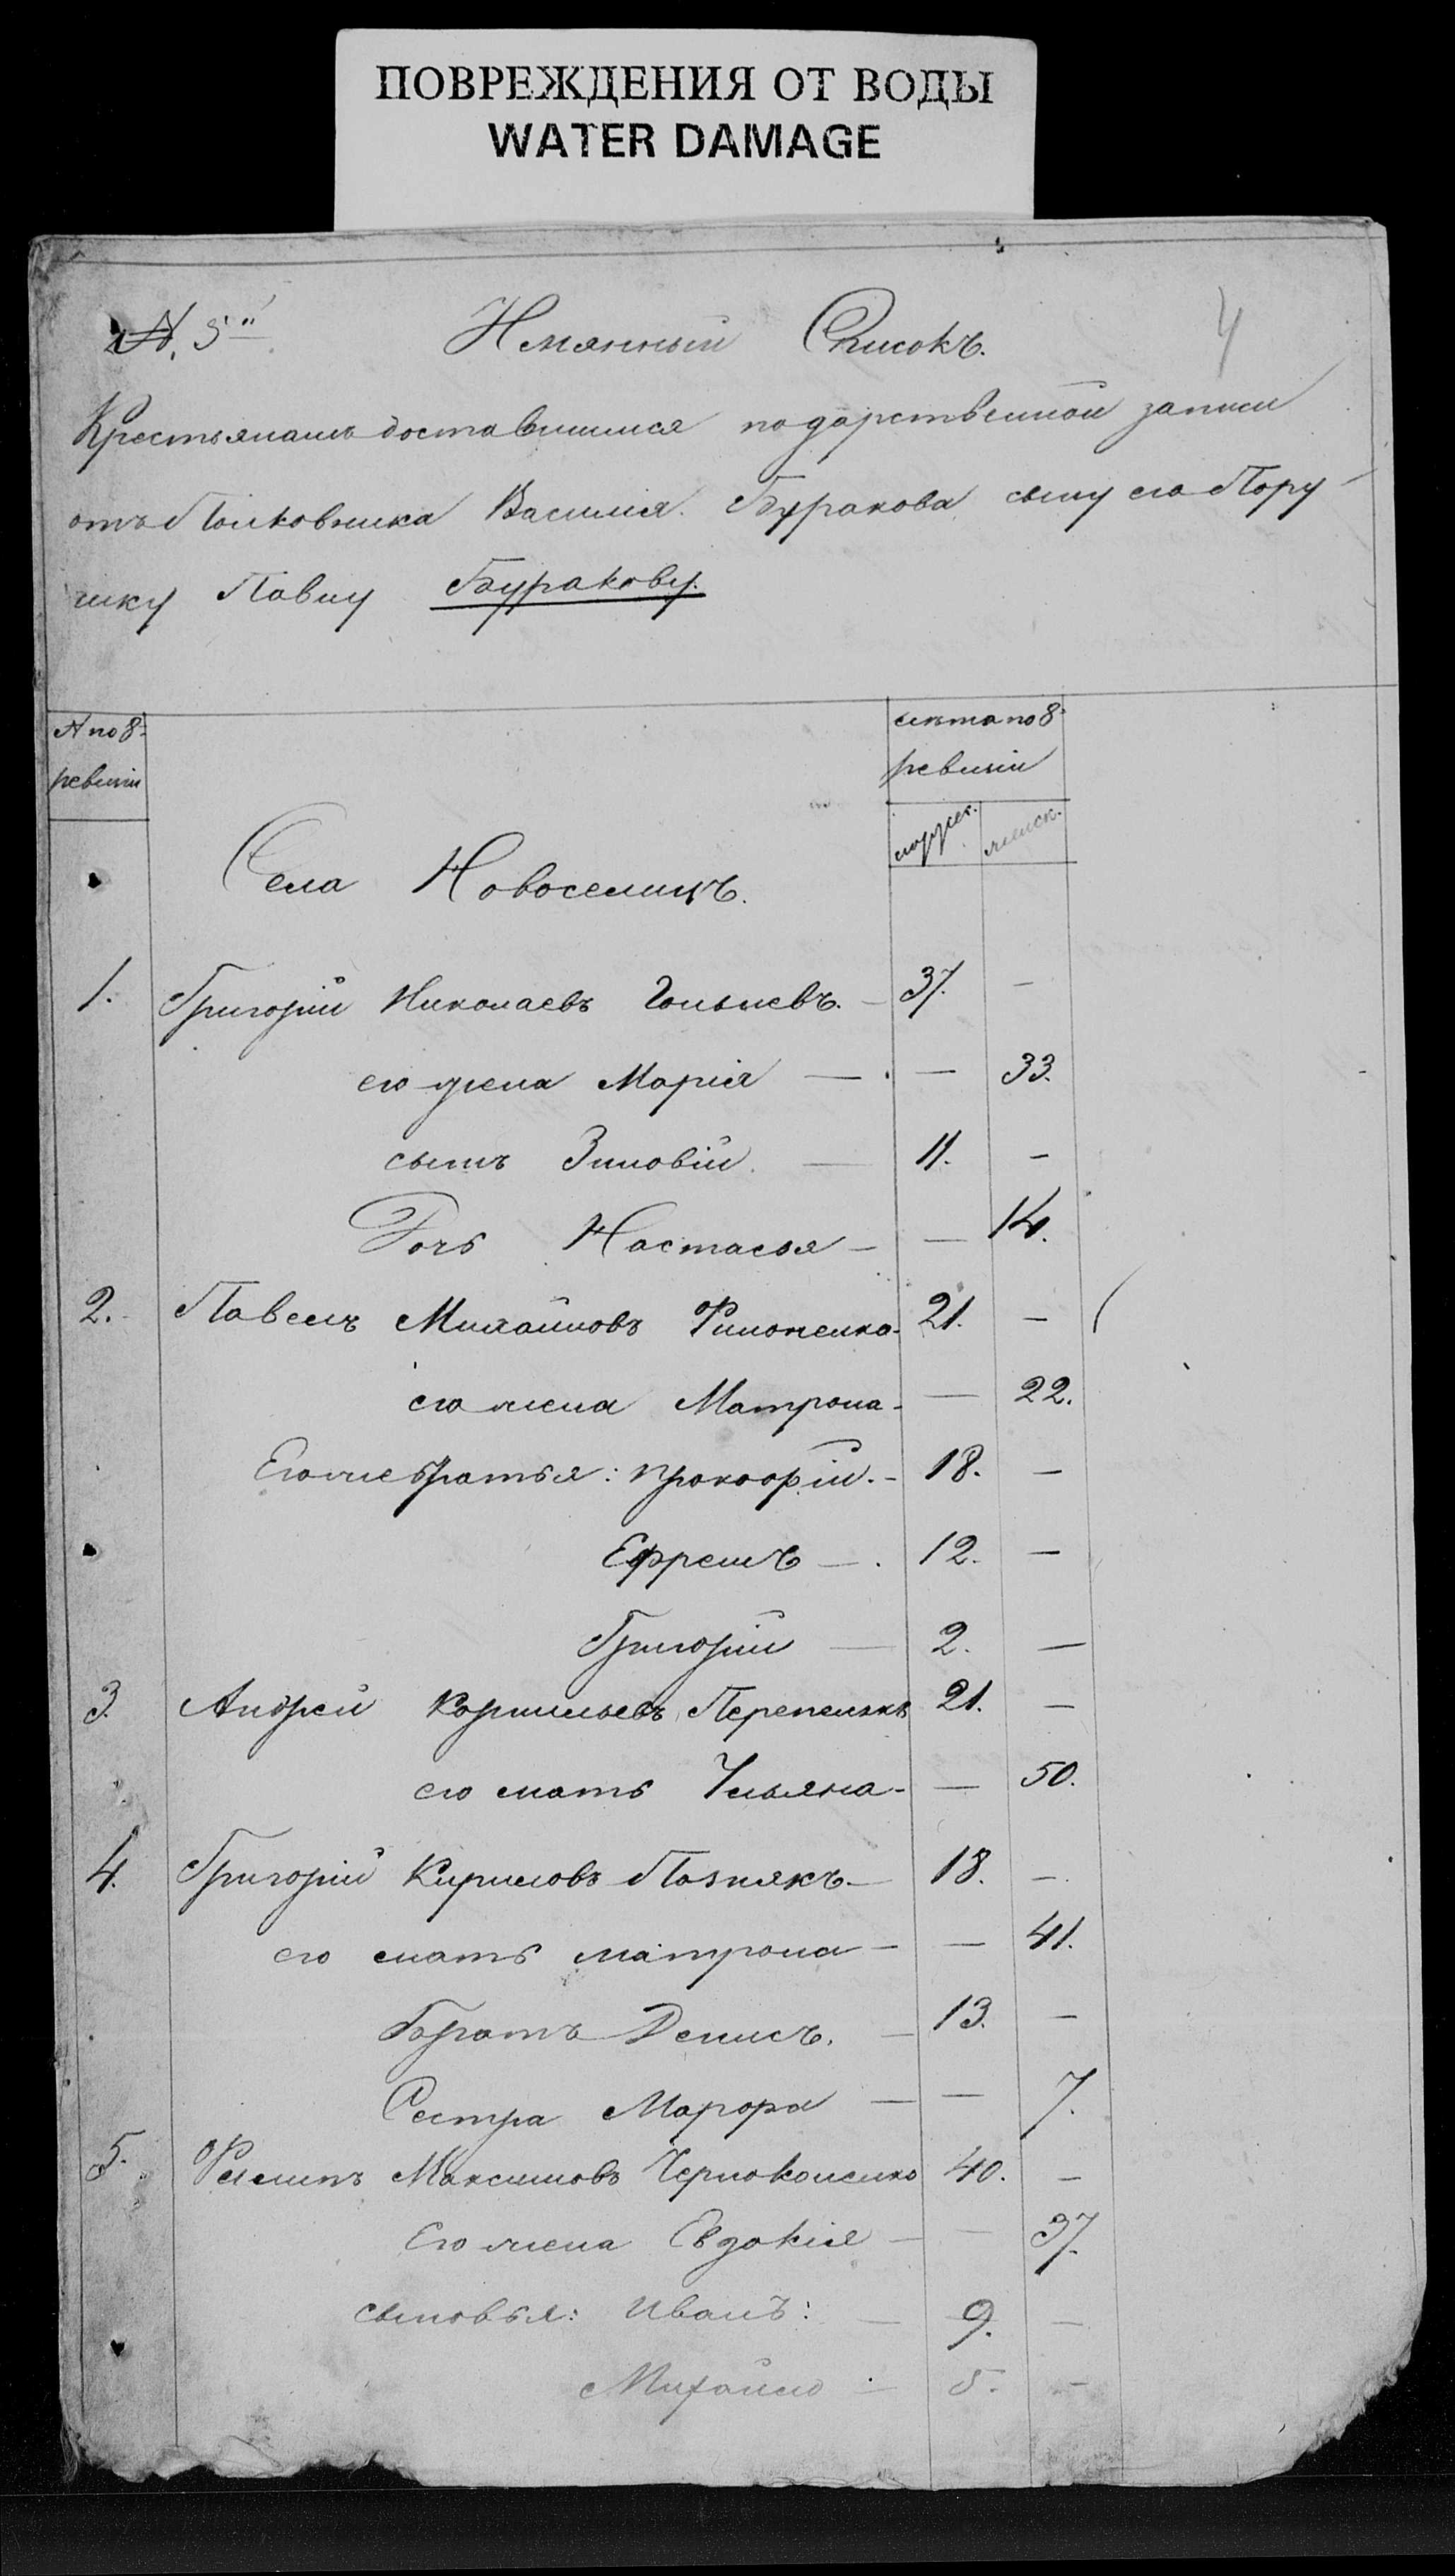 ПОВРЕЖДЕНИЯ ОТ ВОДЫ
WATER DAMAGE
№ 5й Имянный Списокъ. 4
Крестьянамъ доставшимся по дарственной записи
отъ Полковника Василия Буракова сыну его Пору
чику Павлу Буракову.
№ по 8й ревизіи
лѣта по 8й ревизіи
мужес. женск.
Села Новоселицъ.
1. Григорій Николаевъ 37. —
его жена Марія — — 33.
сынъ Зиновій. — 11. —
Дочь Настасья — — 14.
2. Павелъ Михайловъ Филоненко 21. —
его жена Матрона — — 22.
Его же братья: Прокофій. — 18. —
Ефремъ — 12. —
Григорій — 2. —
3. Андрей Корнильевъ 21. —
его мать Ульяна — — 50.
4. Григорій Кириловъ Познякъ — 18. —
его мать матрона — — 41.
Братъ Денисъ. — 13. —
Сестра Марфа — — 7.
5. Филипъ Максимовъ 40. —
Его жена Евдокія — — 37.
сыновья: Иванъ: — 9. —
Михайло — 5. —